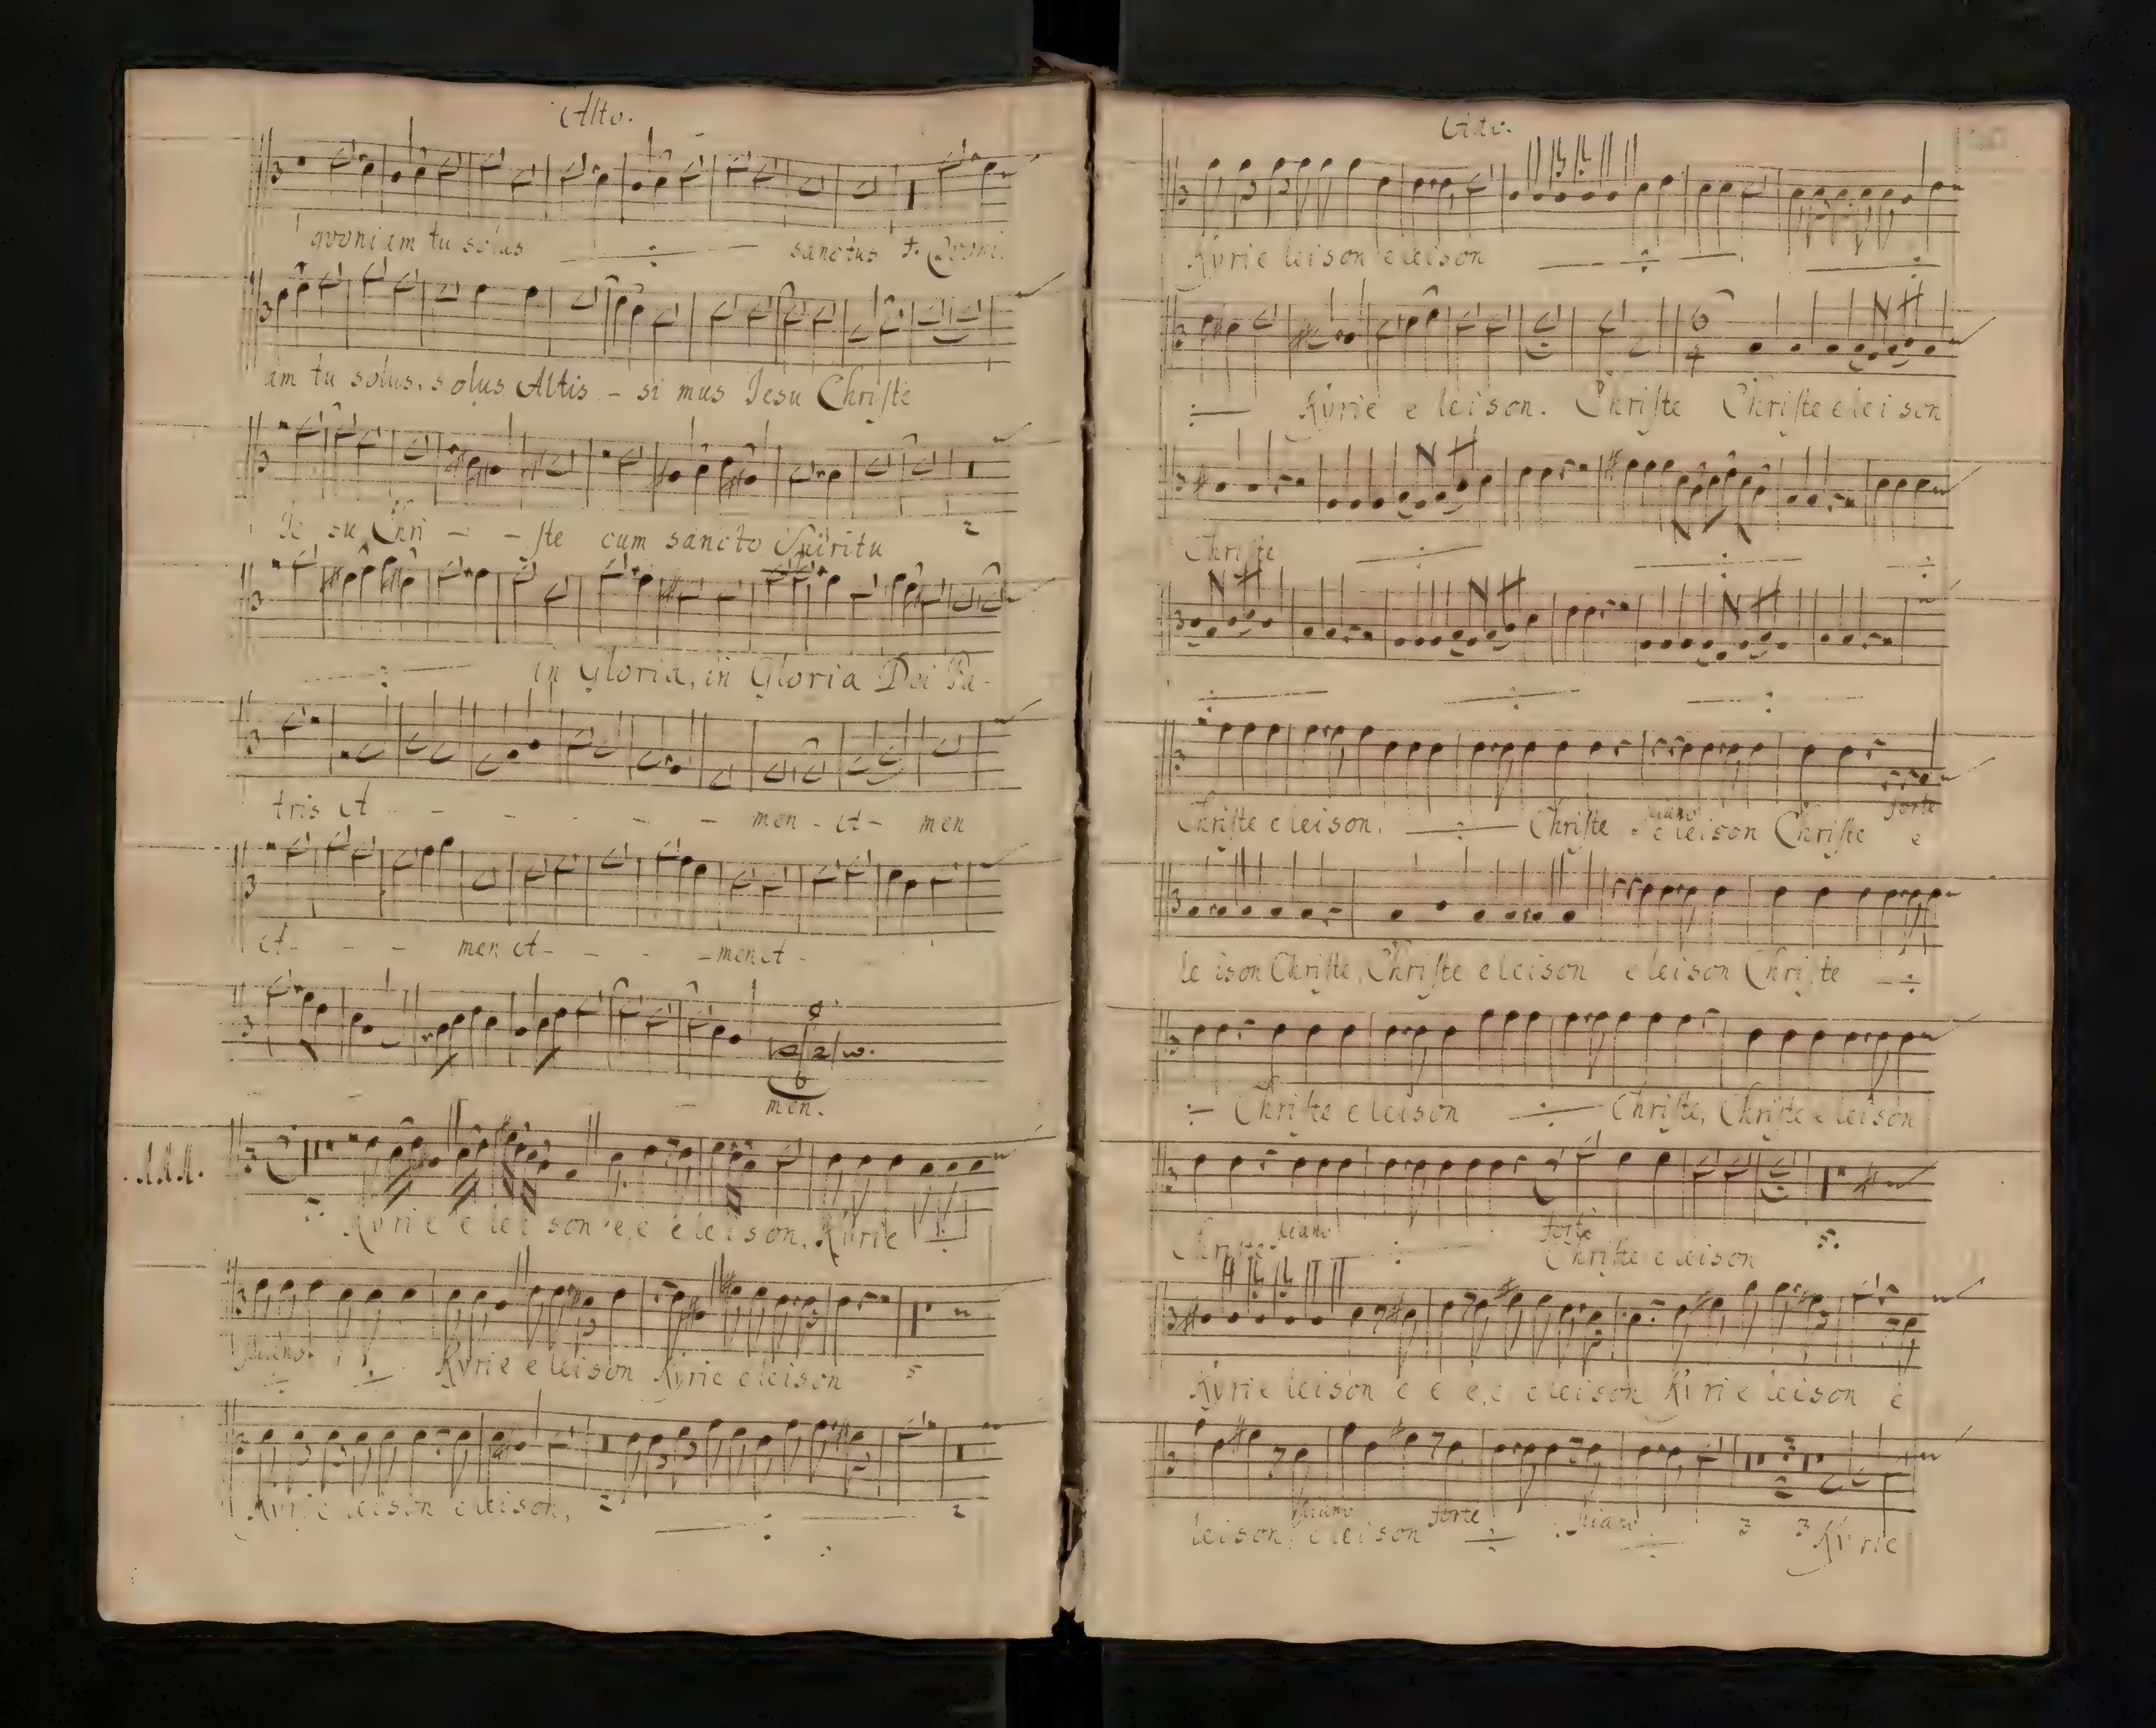 Alto.
quoniam tu solus sanctus
am tu solus, solus Altis - si mus Jesu Chriſte
Je su Chri - - ſte cum sancto Spiritu
2
in Gloria, in Gloria Dei Pa-
tris A - - - - - - men - A - men
A - - - men A - - - - men A -
men.
Kyrie e lei son e, e e le i son, Kyrie
piano Kyrie e leison Kyrie e leison 5
Kyrie leison e leison, 2 2
Alto.
Kyrie leison e leison
Kyrie e leison. Chriſte Chriſte e lei son
Chriſte
Chriſte e leison, Chriſte piano e leison Chriſte forte e
le ison Chriſte, Chriſte e leison e leison Chriſte
Chriſte e leison Chriſte, Chriſte e leison
Chriſte piano forte Chriſte e leison 5.
Kyrie leison e e e, e e leison Ky rie leison e
leison, piano e leison forte piano 3 3 Kyrie